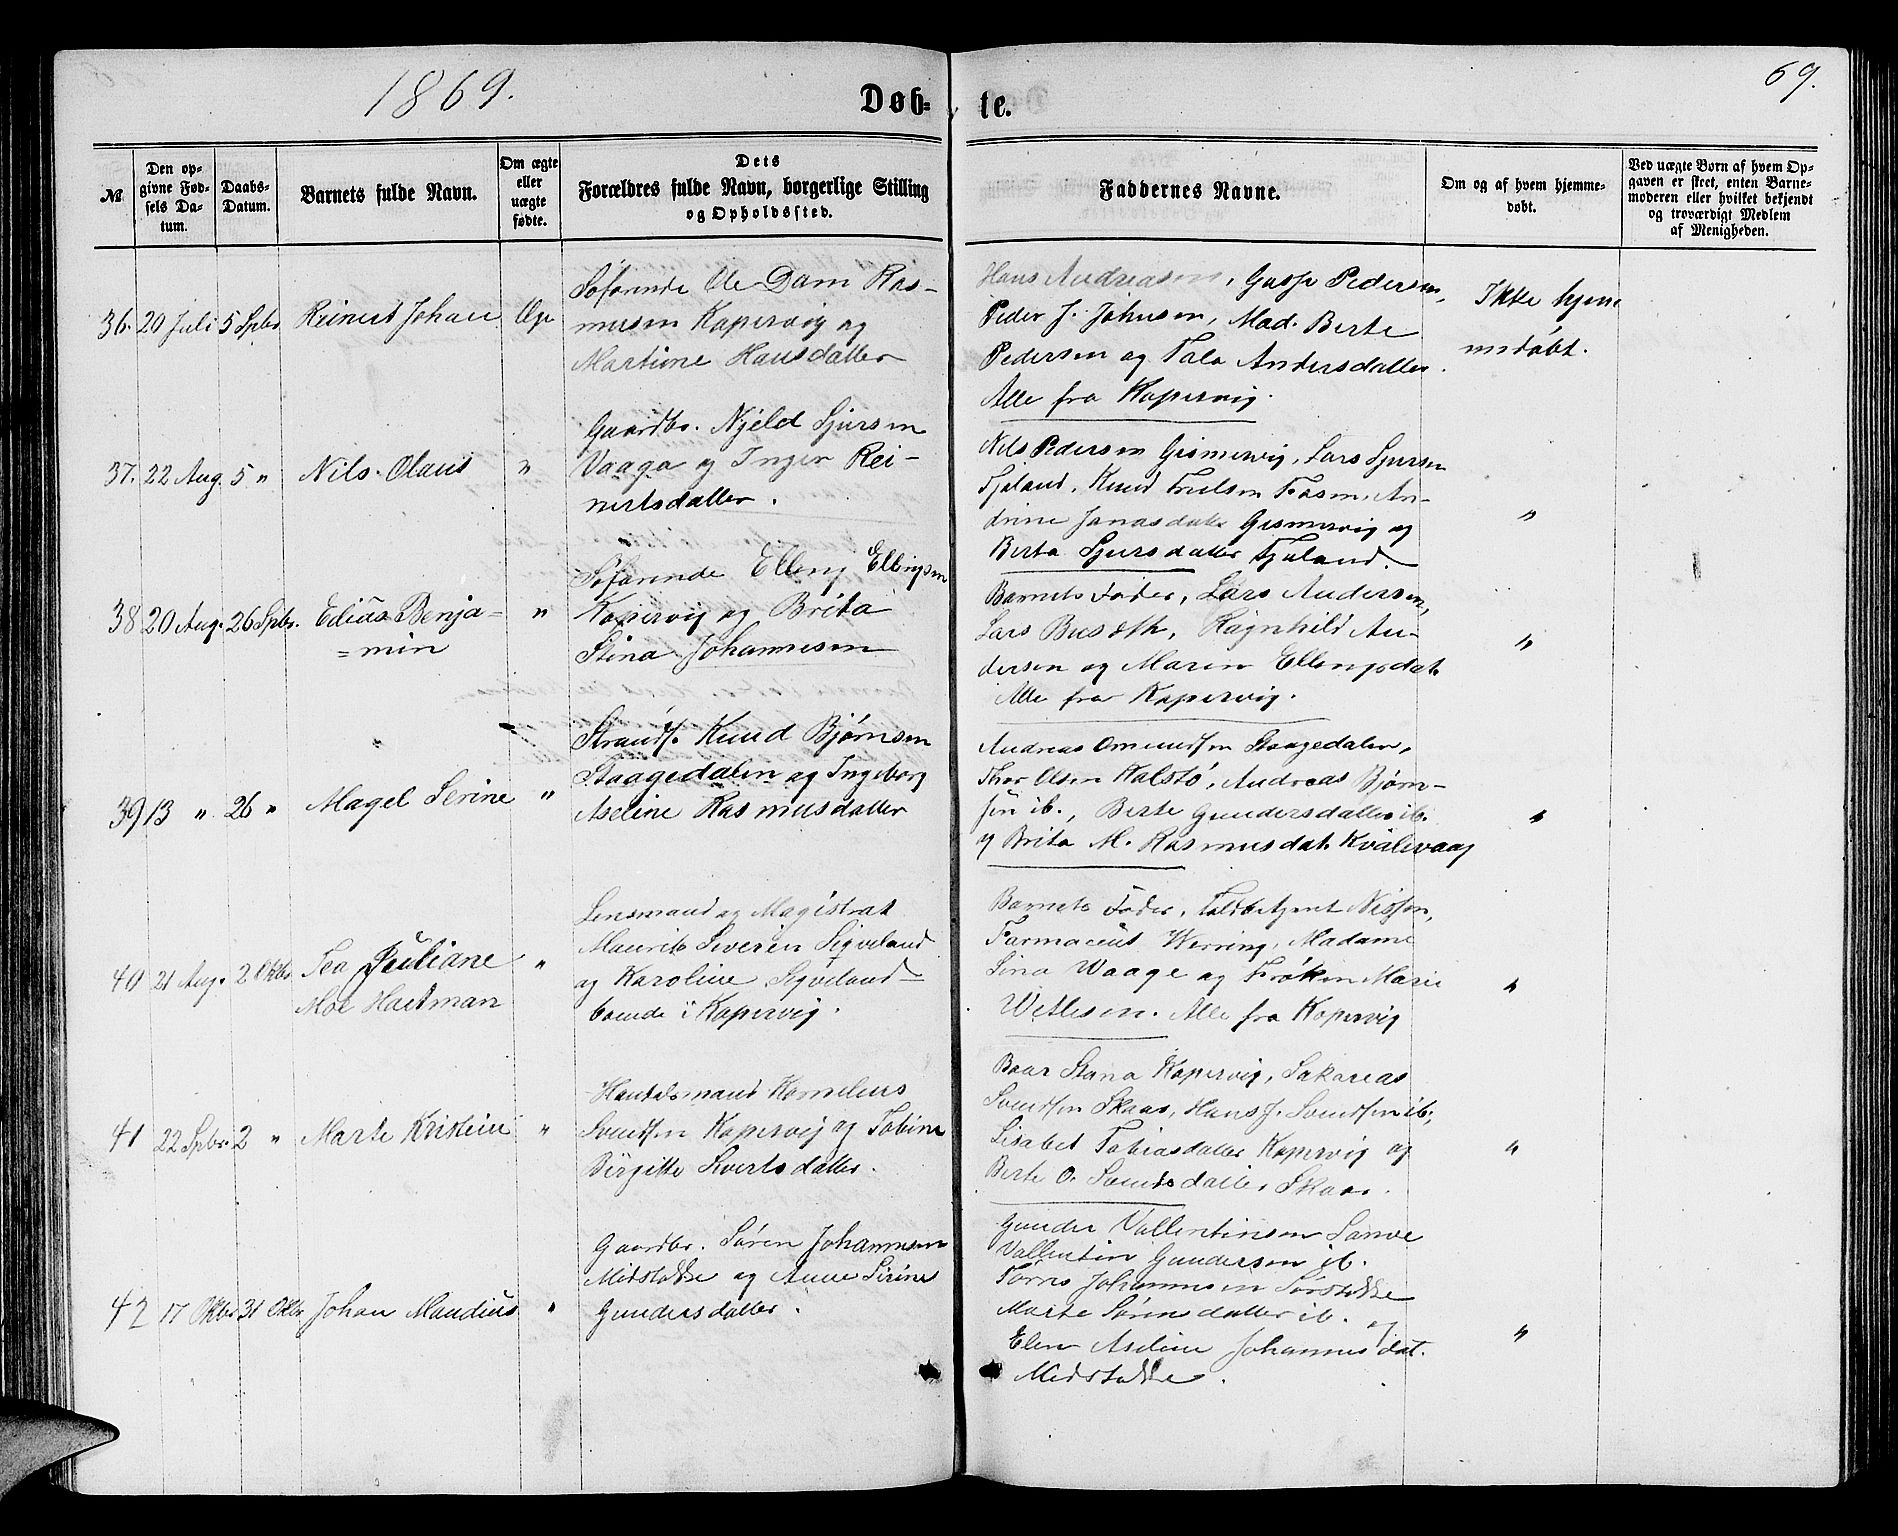 1869.
Døb-
te.
69.
№
Den op-
givne Fød-
sels Da-
tum.
Daabs-
Datum.
Barnets fulde Navn.
Om ægte
eller
uægte
fødte.
Dets
Forældres fulde Navn, borgerlige Stilling
og Opholdssted.
Faddernes Navne.
Om og af hvem hjemme-
døbt.
Ved uægte Børn af hvem Op-
gaven er skeet, enten Barne-
moderen eller hvilket bekjendt
og troværdigt Medlem
af Menigheden.
36. 20 Juli 5 Spbr. Reinert Johan Ægt
Søfarende Ole Dam Ras-
musen Kopervig og
Martine Hansdatter
Hans Andreasen, Pedersen,
Peder J. Johnsen, Mad. Berte
Pedersen og Tala Andersdatter.
Alle fra Kopervig.
Ikke hjem
mdøbt.
37. 22 Aug. 5 " Nils Olaus "
Gaardbr. Njeld Sjursen
Vaaga og Inger Rei-
nertsdatter.
Nils Pedersen Gismervig, Lars Sjursen
Fjeland, Knud Trulsen Fosen, An-
drine Jonasdatr Gismervig og
Berta Sjursdatter Fjeland.
"
38 20 Aug. 26 Spbr. Edias Benja-
=min "
Søfarende Elling Ellingsen
Kopervig og Brita
Stina Johannesen
Barnets Fader, Lars Andersen,
Lars Busæth, Ragnhild An-
dersen og Maren Ellingsdat.
Alle fra Kopervig.
"
39 13 " 26 " Magel Serine "
Strands. Knud Bjørnsen
Staagedalen og Ingeborg
Aseline Rasmusdatter
Andreas Omundsen Staagedalen,
Thor Olsen Halstø, Andreas Bjørn-
sen ib., Berte Gundersdatter ib.
og Brita M. Rasmusdat. Kvalevaag
"
40 21 Aug. 2 Oktbr Tea Juliane
Moe Hartman "
Lensmand og Magistrat
Maurits Severin Sigveland
og Karoline Sigveland
boende i Kopervig.
Barnets Fader, Toldbetjent Nissen,
Farmaceut Werring, Madame
Lina Waage og Frøken Marie
Wetlesen. Alle fra Kopervig
"
41 22 Spbr. 2 " Marte Kristine "
Handelsmand Kornelius
Svendsen Kopervig og Tobine
Birgitte Sivertsdatter.
Baar Stana Kopervig, Sakarias
Svendsen Skaar, Hans J. Svendsen ib.,
Lisabet Tobiasdatter Kopervig og
Berte O. Svendsdatter Skaar.
"
42 17 Oktbr 31 Oktbr Johan Mandius "
Gaardbr. Søren Johannesen
Midstokke og Anne Serine
Gundersdatter.
Gunder Vallentinsen Sanve
Vallentin Gundersen ib.
Tørres Johannesen Sørstokke
Marte Sørensdatter ib. og
Elen Aseline Johannesdat.
Midstokke.
"